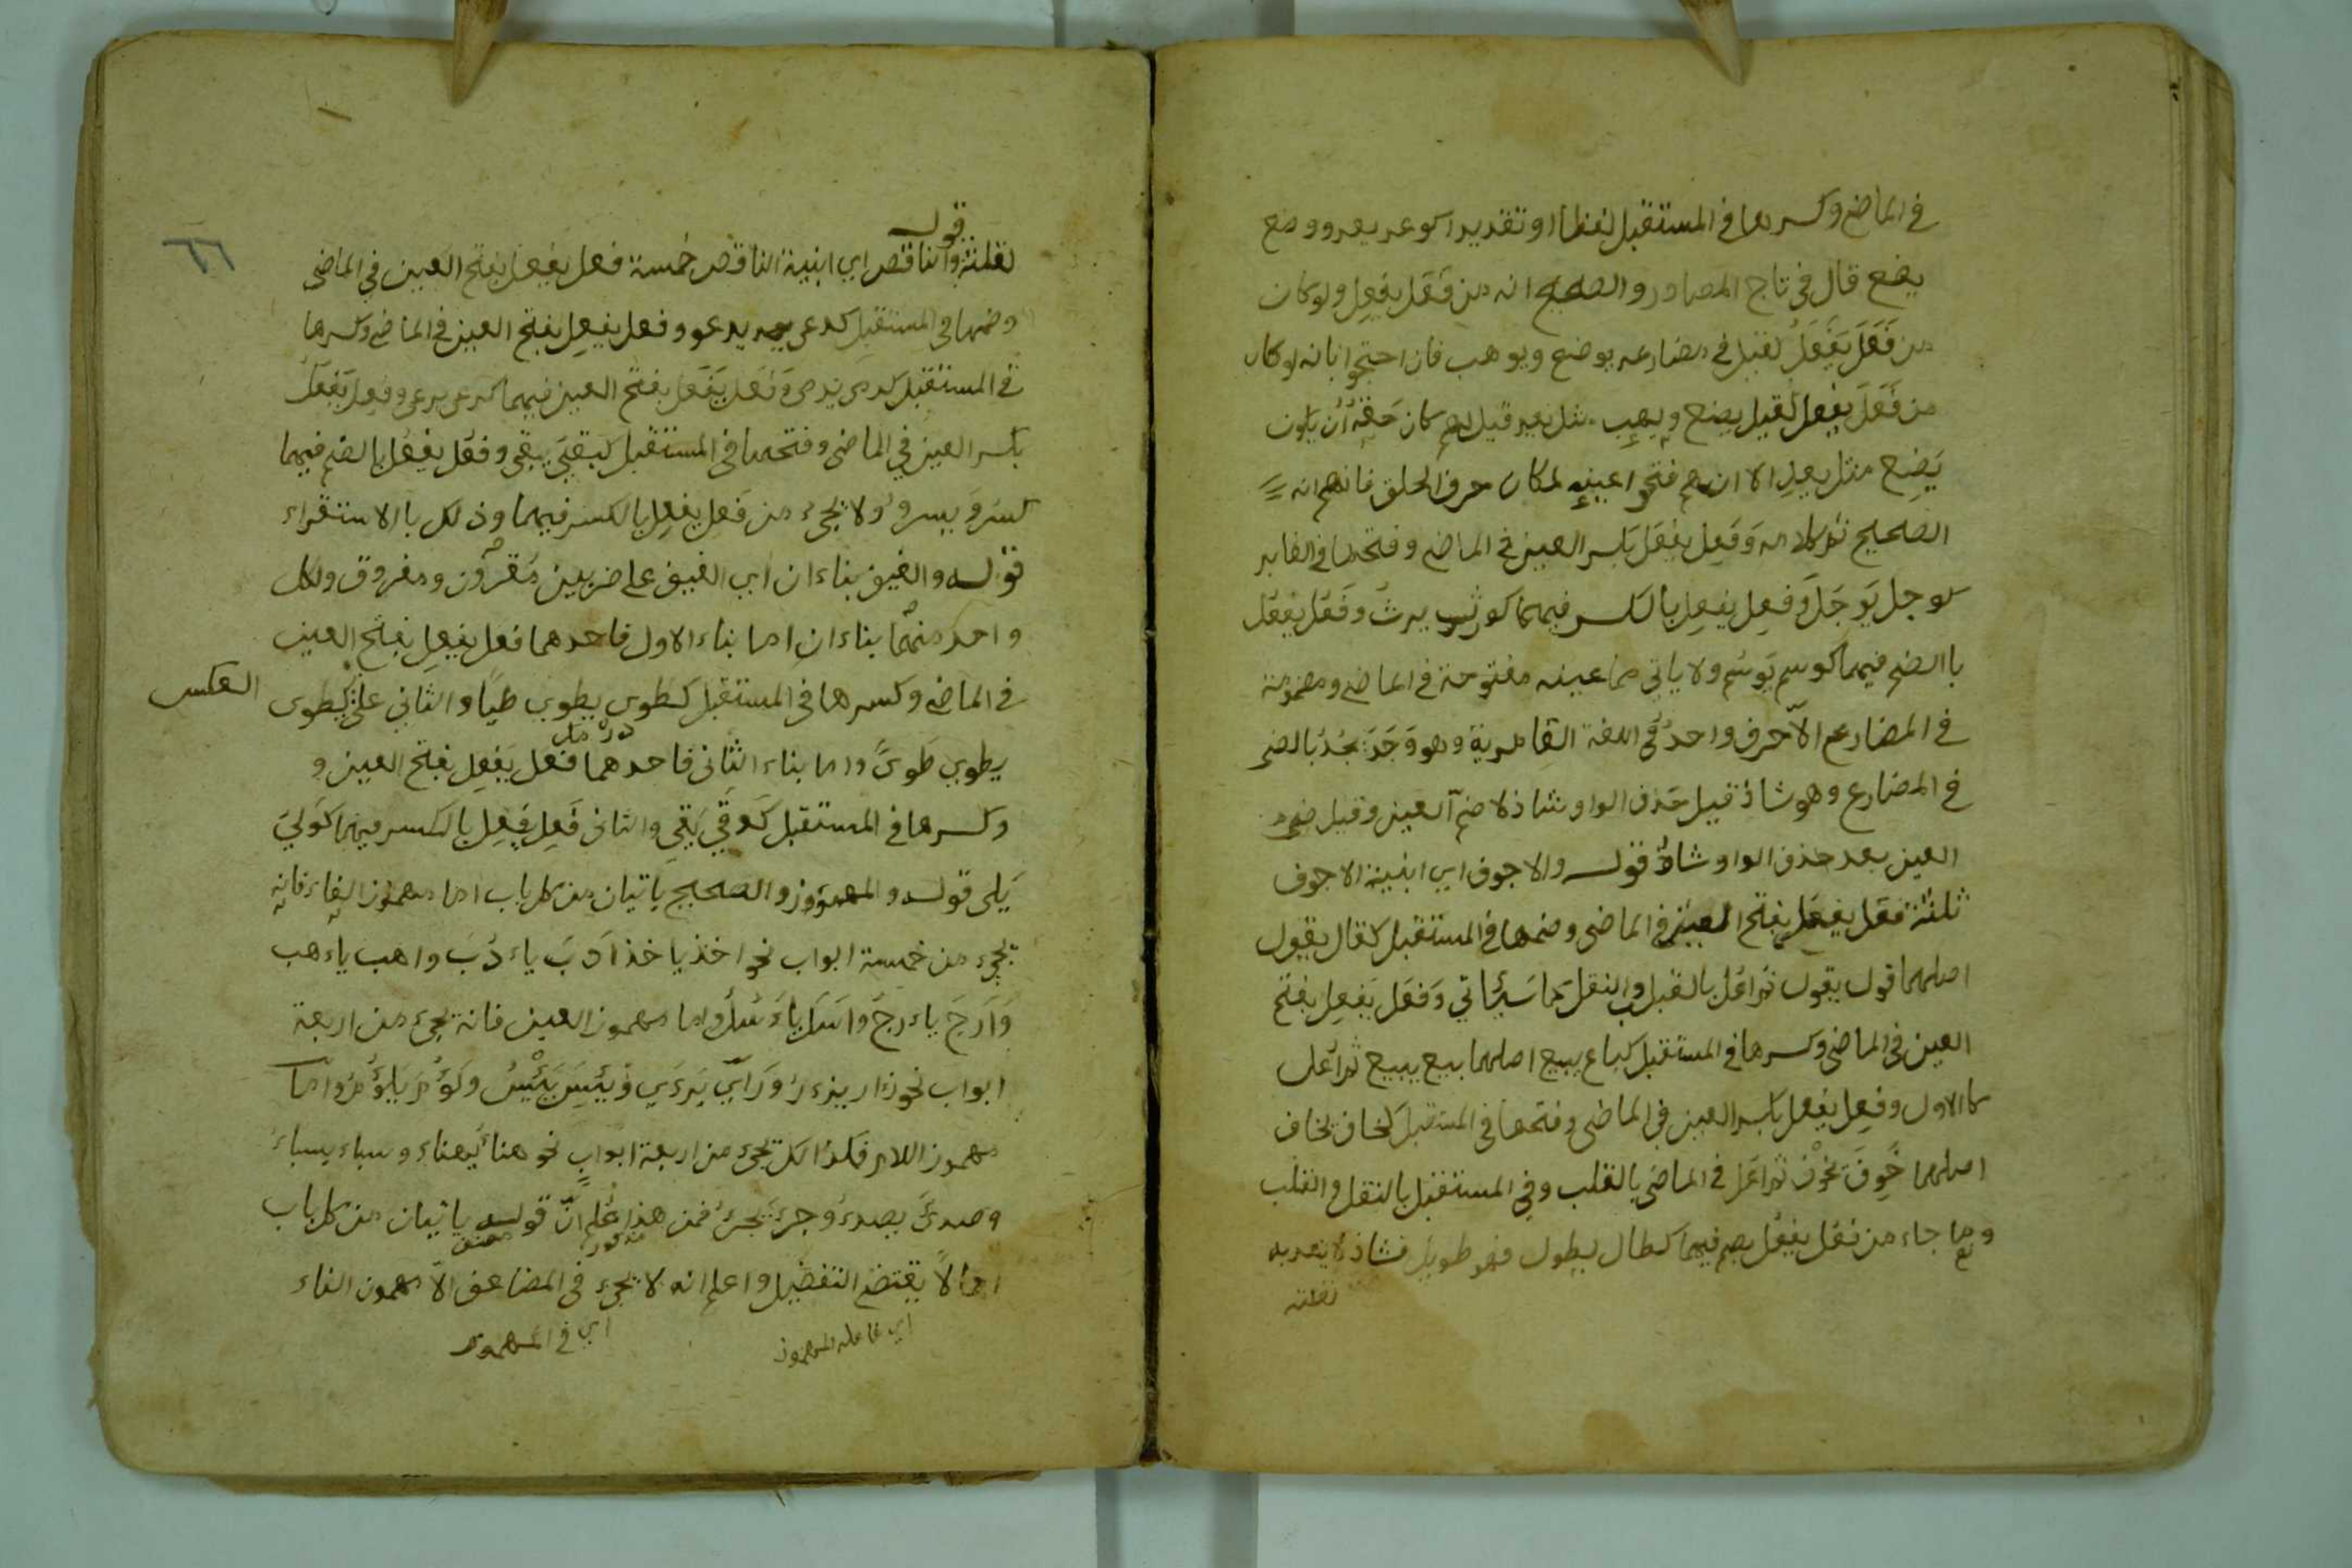 في الماضي وكسرها في المستقبل لفظا او تقديرا كوعد يعد ووضع
يضع قال في تاج المصادر والصحيح انه من فَعَلَ يفعِل ولو كان
من فَعَلَ يَفعَلُ لقيل في مضارعه يوضع ويوهب فان احتجوا بانه لو كان
من فَعَلَ يفعِل لقيل يضع ويهب مثل يعد قيل لهم كان حَقّهُ اَن يكون
يَضِع مثل يعِد الا انهم فتحوا عينه لمكان حرف الحلق فافهم انه
الصحيح تم كلامه وَفَعِل يفعَل بكسر العين في الماضي وفتحها في الغابر
كوجل يَوجَل وَفعِل يفعِل بالكسر فيهما كورث يرث وفَعُل يفعُل
بالضم فيهما كوسم يَوسُم ولا ياتي مما عينه مفتوحة في الماضي ومضمومة
في المضارع الّا حرف واحدٌ في اللغة العامرية وهو وَجَدَ يجُدُ بالضم
في المضارع وهو شاذ قيل حَذف الواو شاذ لا ضم العين وقيل ضم
العين بعد حذف الواو شاذ قوله والاجوف اي ابنية الاجوف
ثلثة فعَل يفعُل بفتح العين في الماضي وضمها في المستقبل كقال يقول
اصلهما قول يقول ثم اعل بالقلب والنقل كما سَيأتي وَفعَل يَفعِل بفتح
العين في الماضي وكسرها في المستقبل كباع يبيع اصلهما بيع يبيع ثم اُعل
كالاول وفعِل يفعل بكسر العين في الماضي وفتحها في المستقبل كخاف يخاف
اصلهما خَوِفَ يخوَف ثم اعل في الماضي بالقلب وفي المستقبل بالنقل والقلب
وما جاء من فعُل يفعُل بضم فيهما كطال يطول فهو طويل فشاذ لا يعد به
لقلته
قوله
لقلته والناقص اي ابنية الناقص خمسة فعل يفعل بفتح العين في الماضي
وضمها في المستقبل كدعى يدعو وفعل يفعِل بفتح العين في الماضي وكسرها
في المستقبل كرمى يرمى وَفعَل يَفعَل بفتح العين فيهما كرعى يرعى وفعِل يَفعَل
بكسر العين في الماضي وفتحها في المستقبل كبقي يبقى وفعُل يفعُل بالضم فيهما
كسَرُوَ يسرو ولا يجيء من فَعِل يفعِل بالكسر فيهما وذلك بالاستقراء
قوله واللفيف بناءان اي اللفيف على ضربين مقرون ومفروق ولكل
واحد منهما بناءان اما بناء الاول فاحدهما فعل يفعِل بفتح العين
في الماضي وكسرها في المستقبل كطوى يطوي طيًا والثاني على كطوى
العكس
يطوي طَوىً واما بناء الثاني فاحدهما فعَل يَفعِل بفتح العين و
وكسرها في المستقبل كَوقى يَقي والثاني فَعِل يَفعِل بالكسر فيهما كَوَلِيَ
يَلى قوله والمهموز والصحيح ياتيان من كل باب اما مهموز الفاء فانه
يجيء من خمسة ابواب نحو اخذ ياخذ اَدبَ ياءدُبَ واهب ياءهب
وَاَرَجَ ياءرجَ واسَل ياءَسُل واما مهموز العين فانه يجيء من اربعة
ابواب نحو زءار يزءر وَرَاَي يَرءَي وَيَئِسَ يَيْئسُ ولَؤُمَ يَلؤُمُ واما
مهموز اللام فكذالك تجيء من اربعة ابواب نحو هناءَ يهناء وسباء يسباءُ
وصدئَ يصدءُ وجرءَ يجرءُ فمن هذا عُلم انّ قوله ياتيان من كل باب
اجمالاً يقتضي التفضيل واعلم انه لا يجيء في المضاعف الاّ مهموز الفاء
اي في المهموز